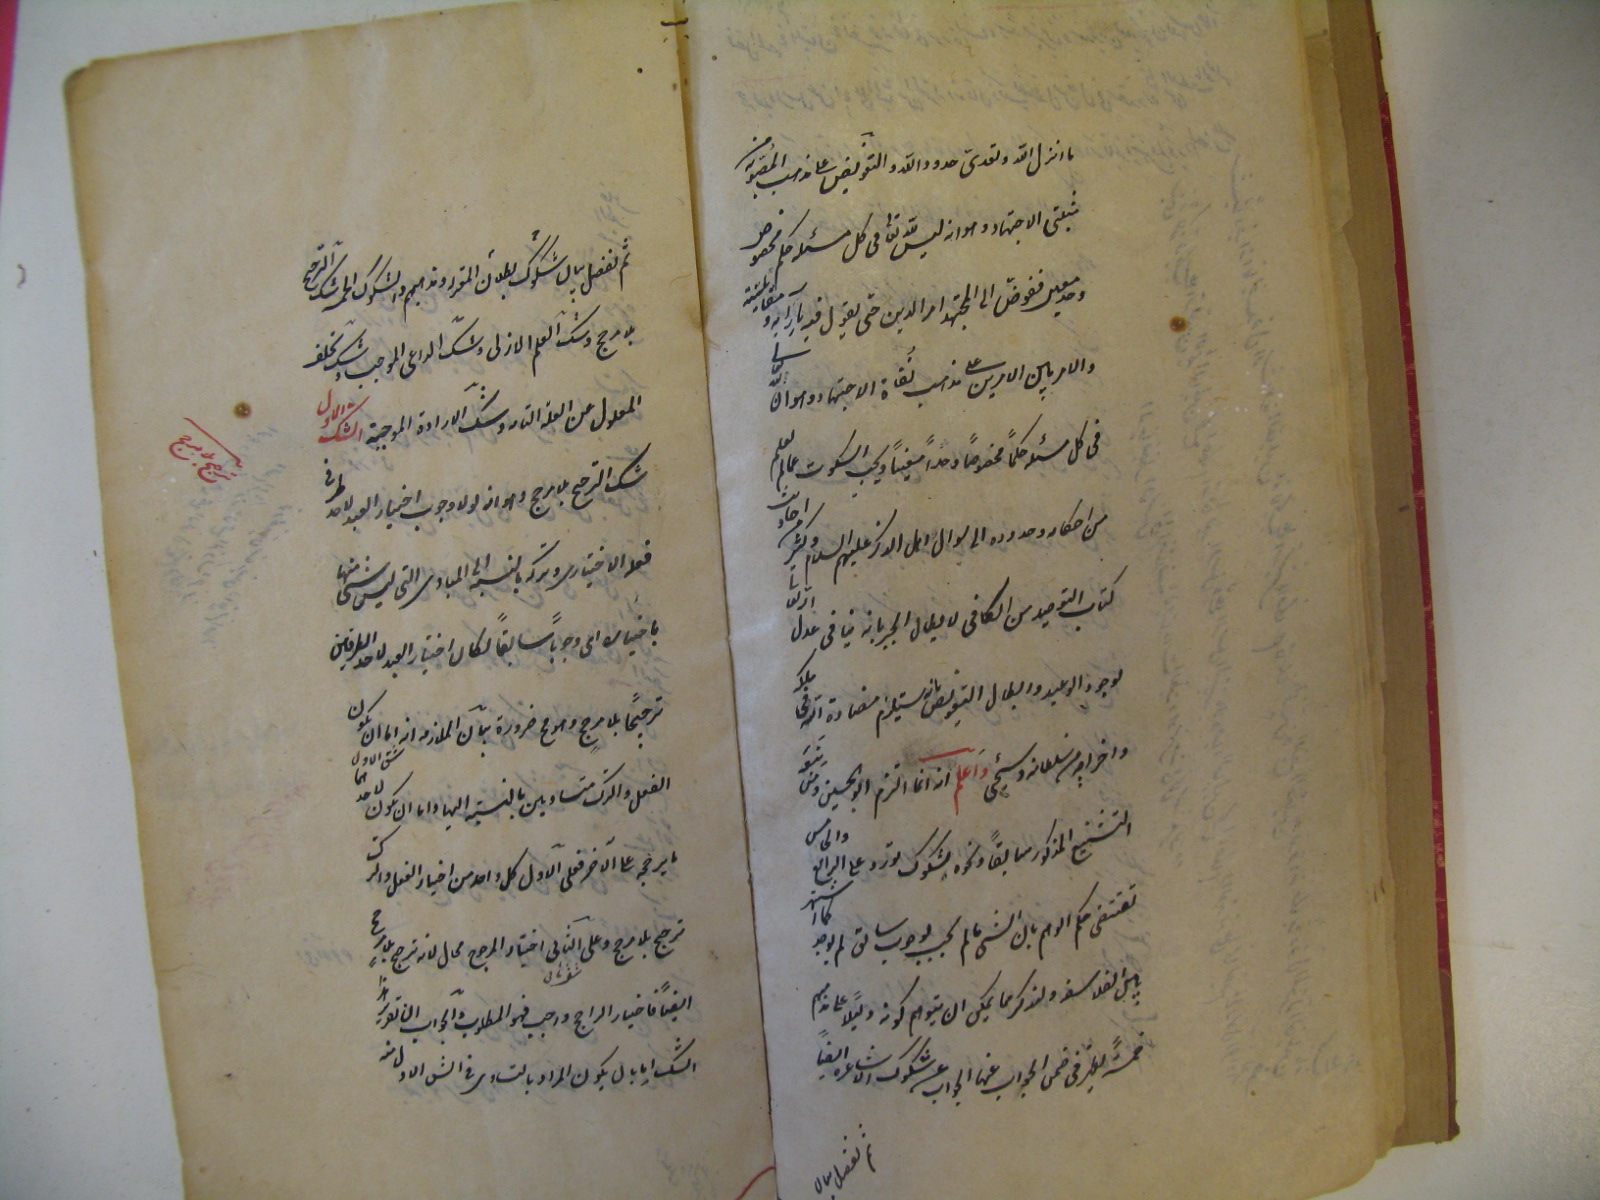 ما انزل الله وتعدى حدود الله والتفويض على مذهب المصوبة من
مثبتى الاجتهاد وهو انه ليس لله تعا فى كل مسئلة حكم مخصوص
واحد معين ففوض الى المجتهد امر الدين حتى يقول فيه بآرائه ومقائيسه
والامر بين الامرين على مذهب نفاة الاجتهاد وهو ان لله تعالى
فى كل مسئلة حكماً مخصوصاً واحداً معيناً ويجب السكوت عما لم يعلم
من احكامه وحدوده الى سوال اهل الذكر عليهم السلام وكثير من احاديث
كتاب التوحيد من الكافى لابطال الجبر بانه ينافى عدل الله تعا
لوجود الوعيد وابطال التفويض بانه يستلزم مضادة الله فى ملكه
واخراجه من سلطانه وسيجئ واعلم انه انما التزم ابو الحسين ومن تبعه
التشنيع المذكور سابقاً ونحوه لشكوك تورد على الرابع والخامس
تقتضى حكم الوهم بان الشئ ما لم يجب لوجوب سابق لم يوجد كما اشتهر
بين الفلاسفة ولنذكر مما يمكن ان يتوهم كونه دليلاً على مذهبهم
خمسة ليظهر فى ضمن الجواب عنها الجواب عن شكوك الاشاعرة ايضاً
ثم نفصل بيان
ثم نفصل بيان شكوك بطلان المقرر ومذاهبهم والشكوك الخمسة شك الترجيح
بلا مرجح وشك العلم الازلى وشك الداعى الموجب وشك تخلف
المعلول عن العلة التامة وشك الارادة الموجبة الشك الاول
شك الترجيح بلا مرجح وهو انه لولا وجوب اختيار العبد لاحد طرفى
فعله الاختيارى وتركه بالنسبة الى المبادى التى ليس شئ منها
باختياره اى وجوباً سابقاً لكان اختيار العبد لاحد الطرفين
ترجيحاً بلا مرجح وهو مح ضرورة بيان الملازمة انه اما ان يكون
الفعل والترك متساويين بالنسبة اليها واما ان يكون لاحدهما
ما يرجحه على الآخر فعلى الاول كل واحد من اختيار الفعل والترك
ترجيح بلا مرجح وعلى الثانى اختيار المرجوح محال لانه ترجيح بلا مرجح
ايضاً فاختيار الراجح واجب فهو المطلوب والجواب ان تقرير هذا
الشك اما بان يكون المراد بالتساوى فى الشق الاول منه
شق الاول
ترجيح بلا مرجح